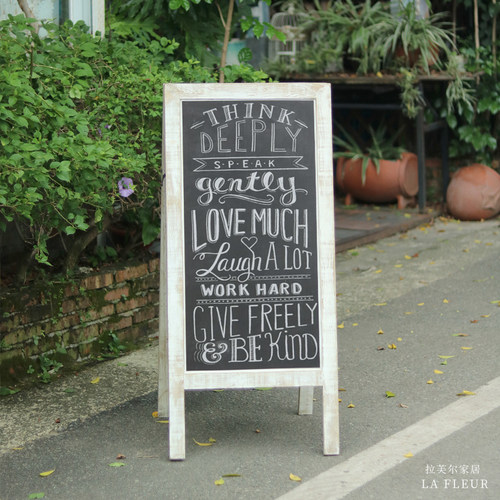 THINK
DEEPLY
SPEAK
gently
LOVE MUCH
Laugh A LOT
WORK HARD
GIVE FREELY
& BE KIND
拉芙尔家居
LA FLEUR
拉芙尔家居
LA FLEUR